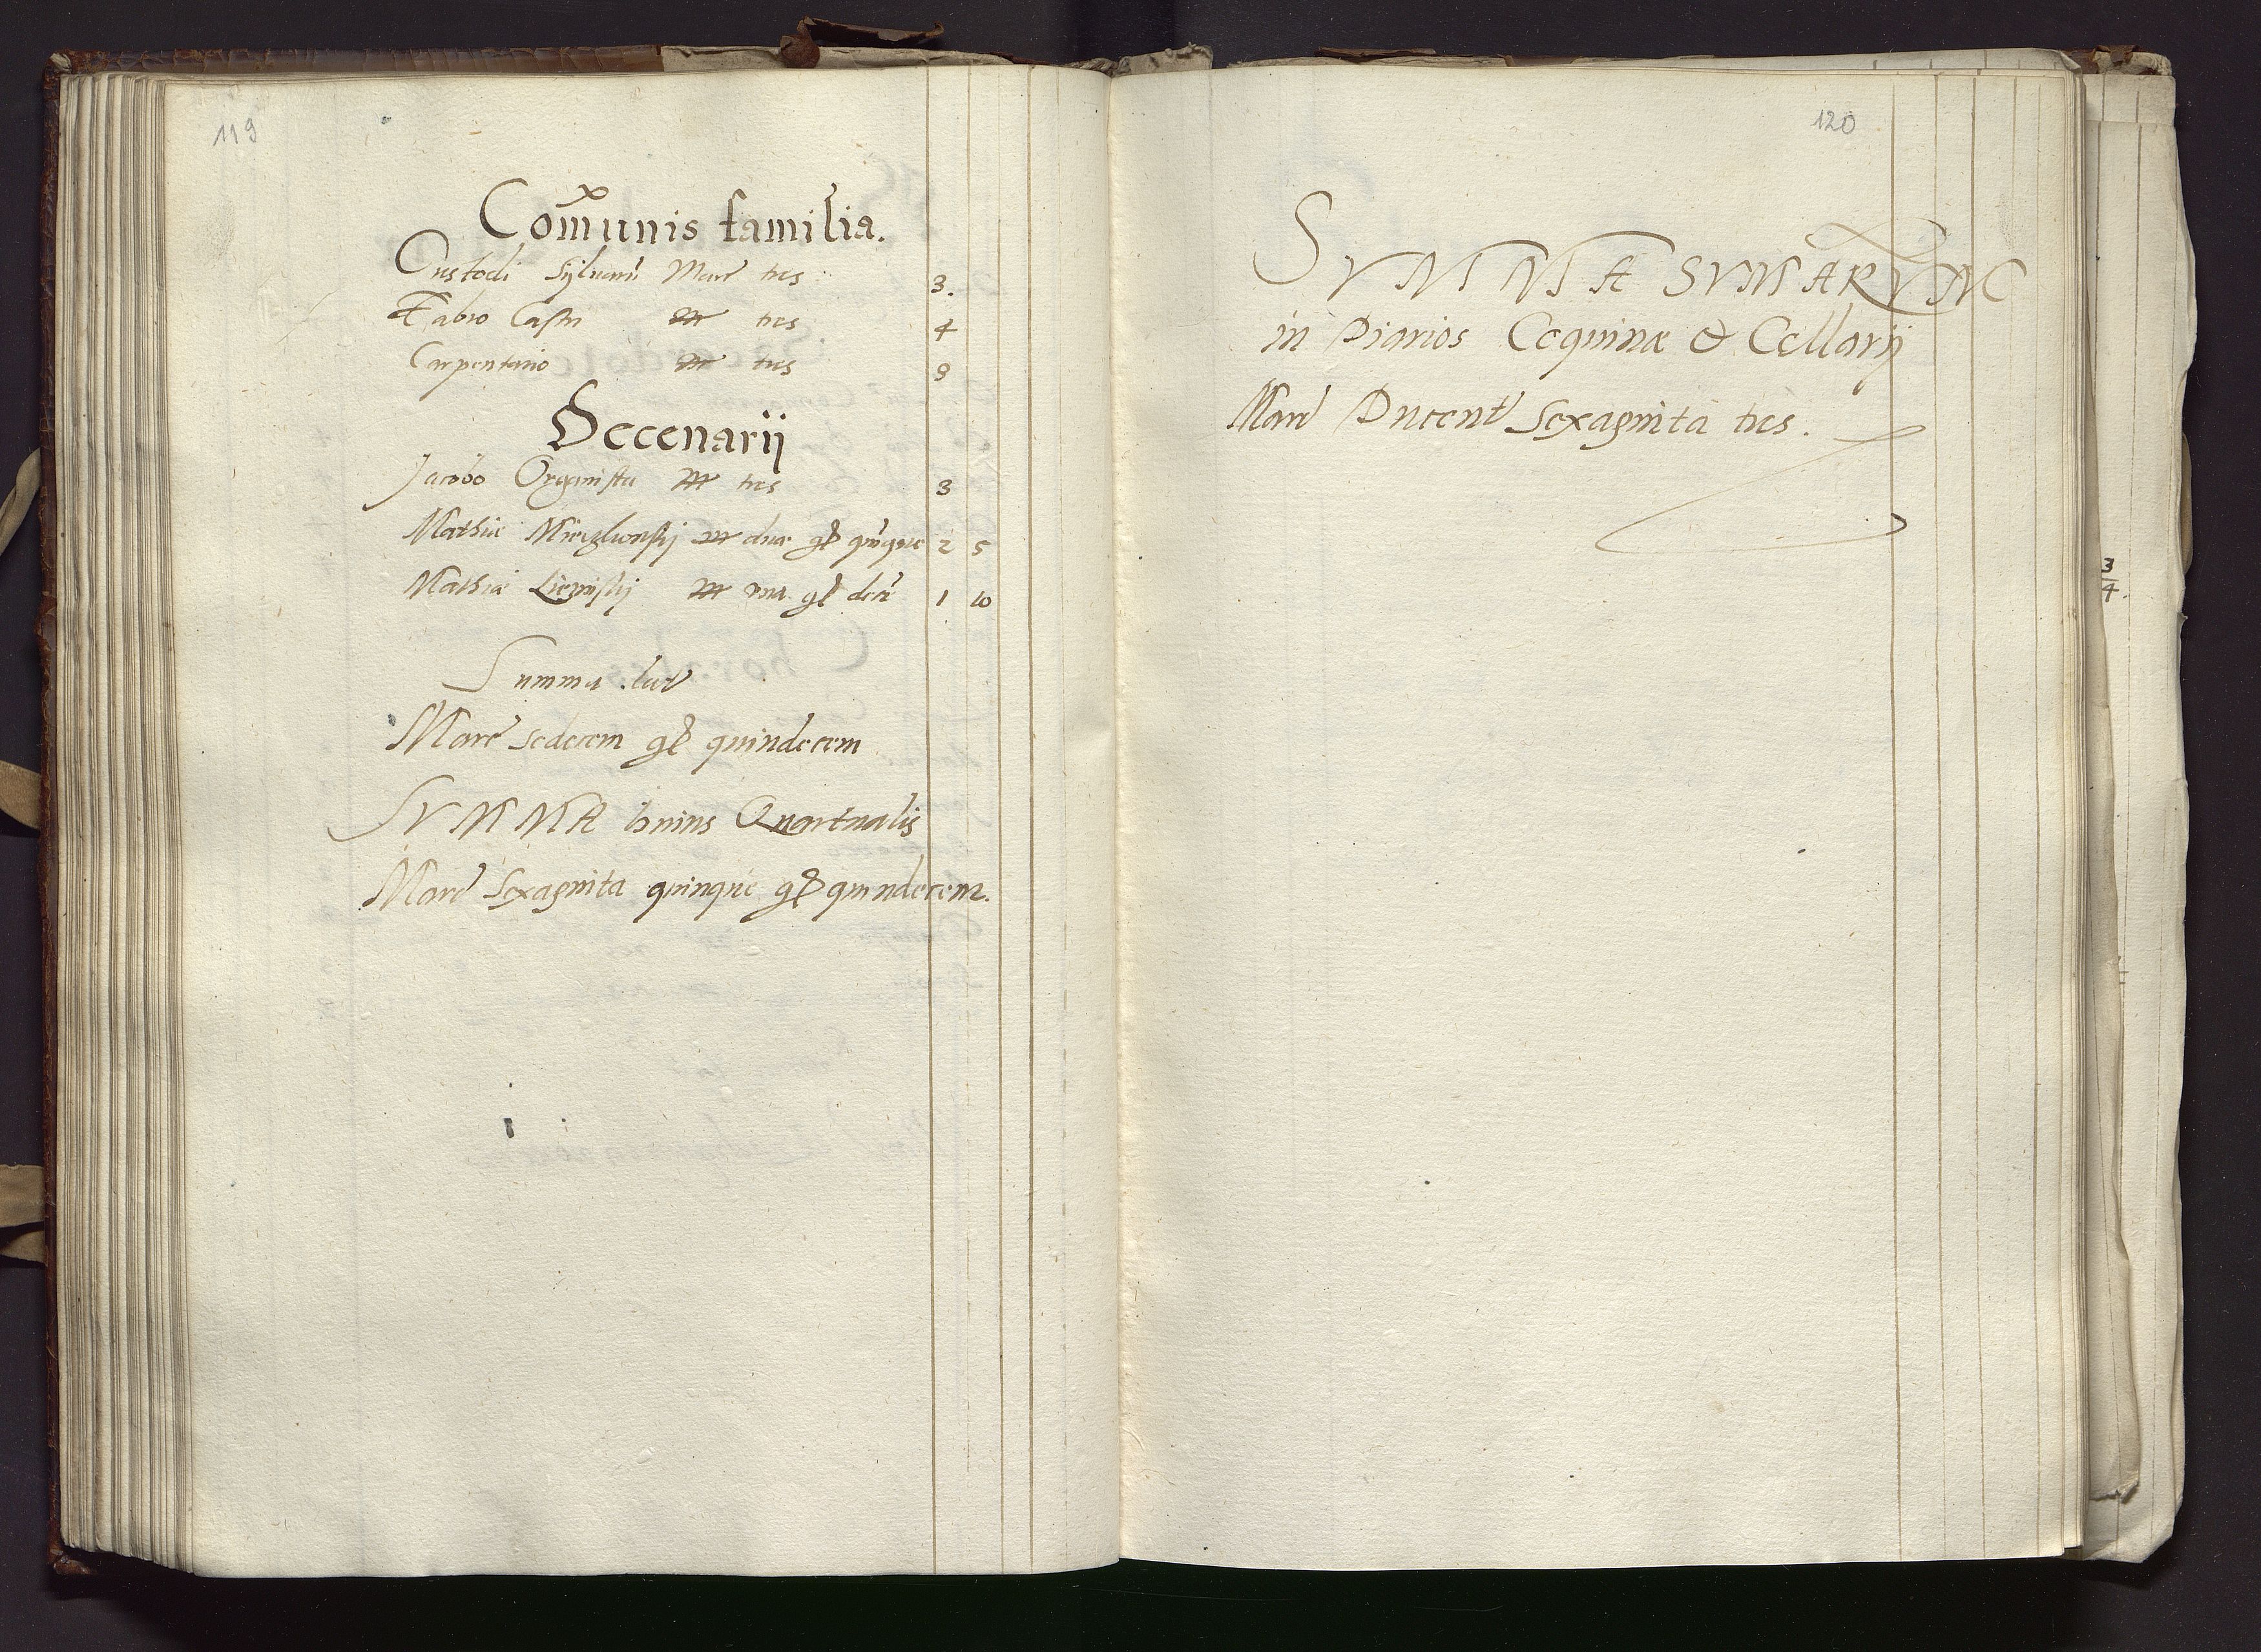 119
Com̃unis familia.
Custodi Syluarũ Marc tres 3.
Fabro Castri mr tres 4
Carpentario mr tres 3
Decenarij
Jacobo Organista mr tres 3
Mathiæ mr duæ gr quĩque 2 5
Mathiæ mr vna gr decẽ 1 10
Summa lat
Marc sedecem gr quindecem
SVMMA huius Quartualis
Marc Sexaginta quinque gr quindecem.
120
SVMMA SVMARVM
in Diarios Coquinæ & Cellarij
Marc Ducent Sexaginta tres.
3
4.